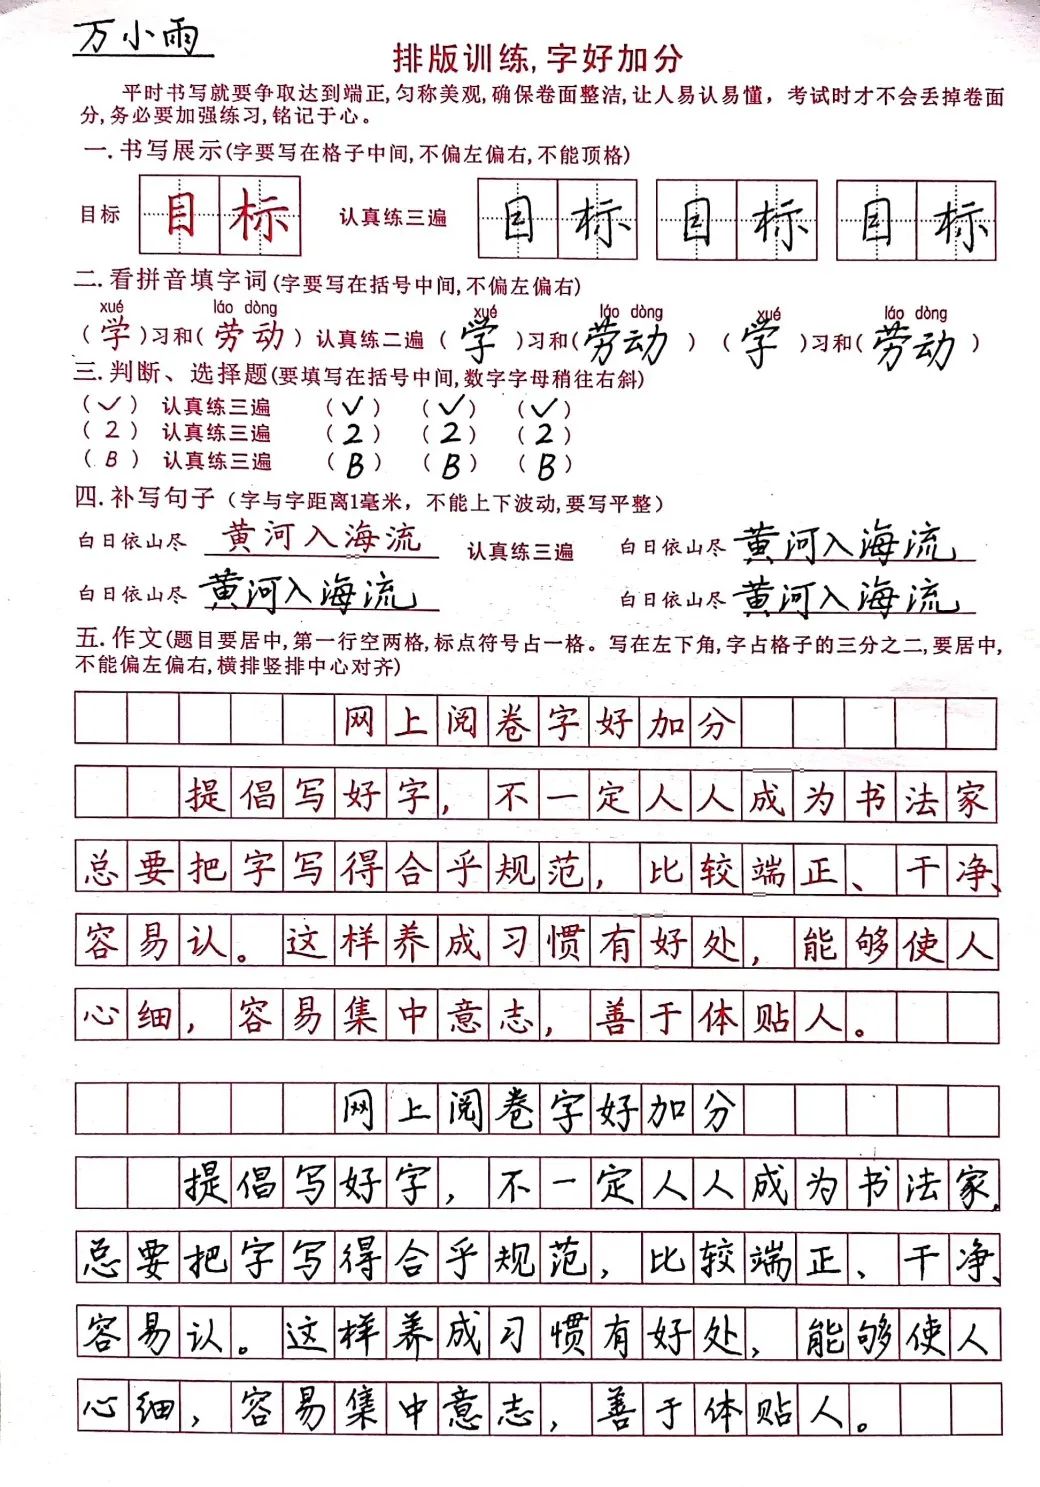 万小雨
排版训练,字好加分
平时书写就要争取达到端正,匀称美观,确保卷面整洁,让人易认易懂，考试时才不会丢掉卷面
分,务必要加强练习,铭记于心。
一.书写展示(字要写在格子中间,不偏左偏右,不能顶格)
目标 目标 认真练三遍 目标 目标 目标
二.看拼音填字词(字要写在括号中间,不偏左偏右)
xué láo dòng xué láo dòng xué láo dòng
(学)习和(劳动)认真练二遍(学)习和(劳动) (学)习和(劳动)
三.判断、选择题(要填写在括号中间,数字字母稍往右斜)
(✓) 认真练三遍 (✓) (✓) (✓)
(2) 认真练三遍 (2) (2) (2)
(B) 认真练三遍 (B) (B) (B)
四.补写句子（字与字距离1毫米，不能上下波动,要写平整）
白日依山尽 黄河入海流 认真练三遍 白日依山尽 黄河入海流
白日依山尽 黄河入海流 白日依山尽 黄河入海流
五.作文(题目要居中,第一行空两格,标点符号占一格。写在左下角,字占格子的三分之二,要居中,
不能偏左偏右,横排竖排中心对齐)
网上阅卷字好加分
提倡写好字，不一定人人成为书法家
总要把字写得合乎规范，比较端正、干净、
容易认。这样养成习惯有好处，能够使人
心细，容易集中意志，善于体贴人。
网上阅卷字好加分
提倡写好字，不一定人人成为书法家，
总要把字写得合乎规范，比较端正、干净、
容易认。这样养成习惯有好处，能够使人
心细，容易集中意志，善于体贴人。